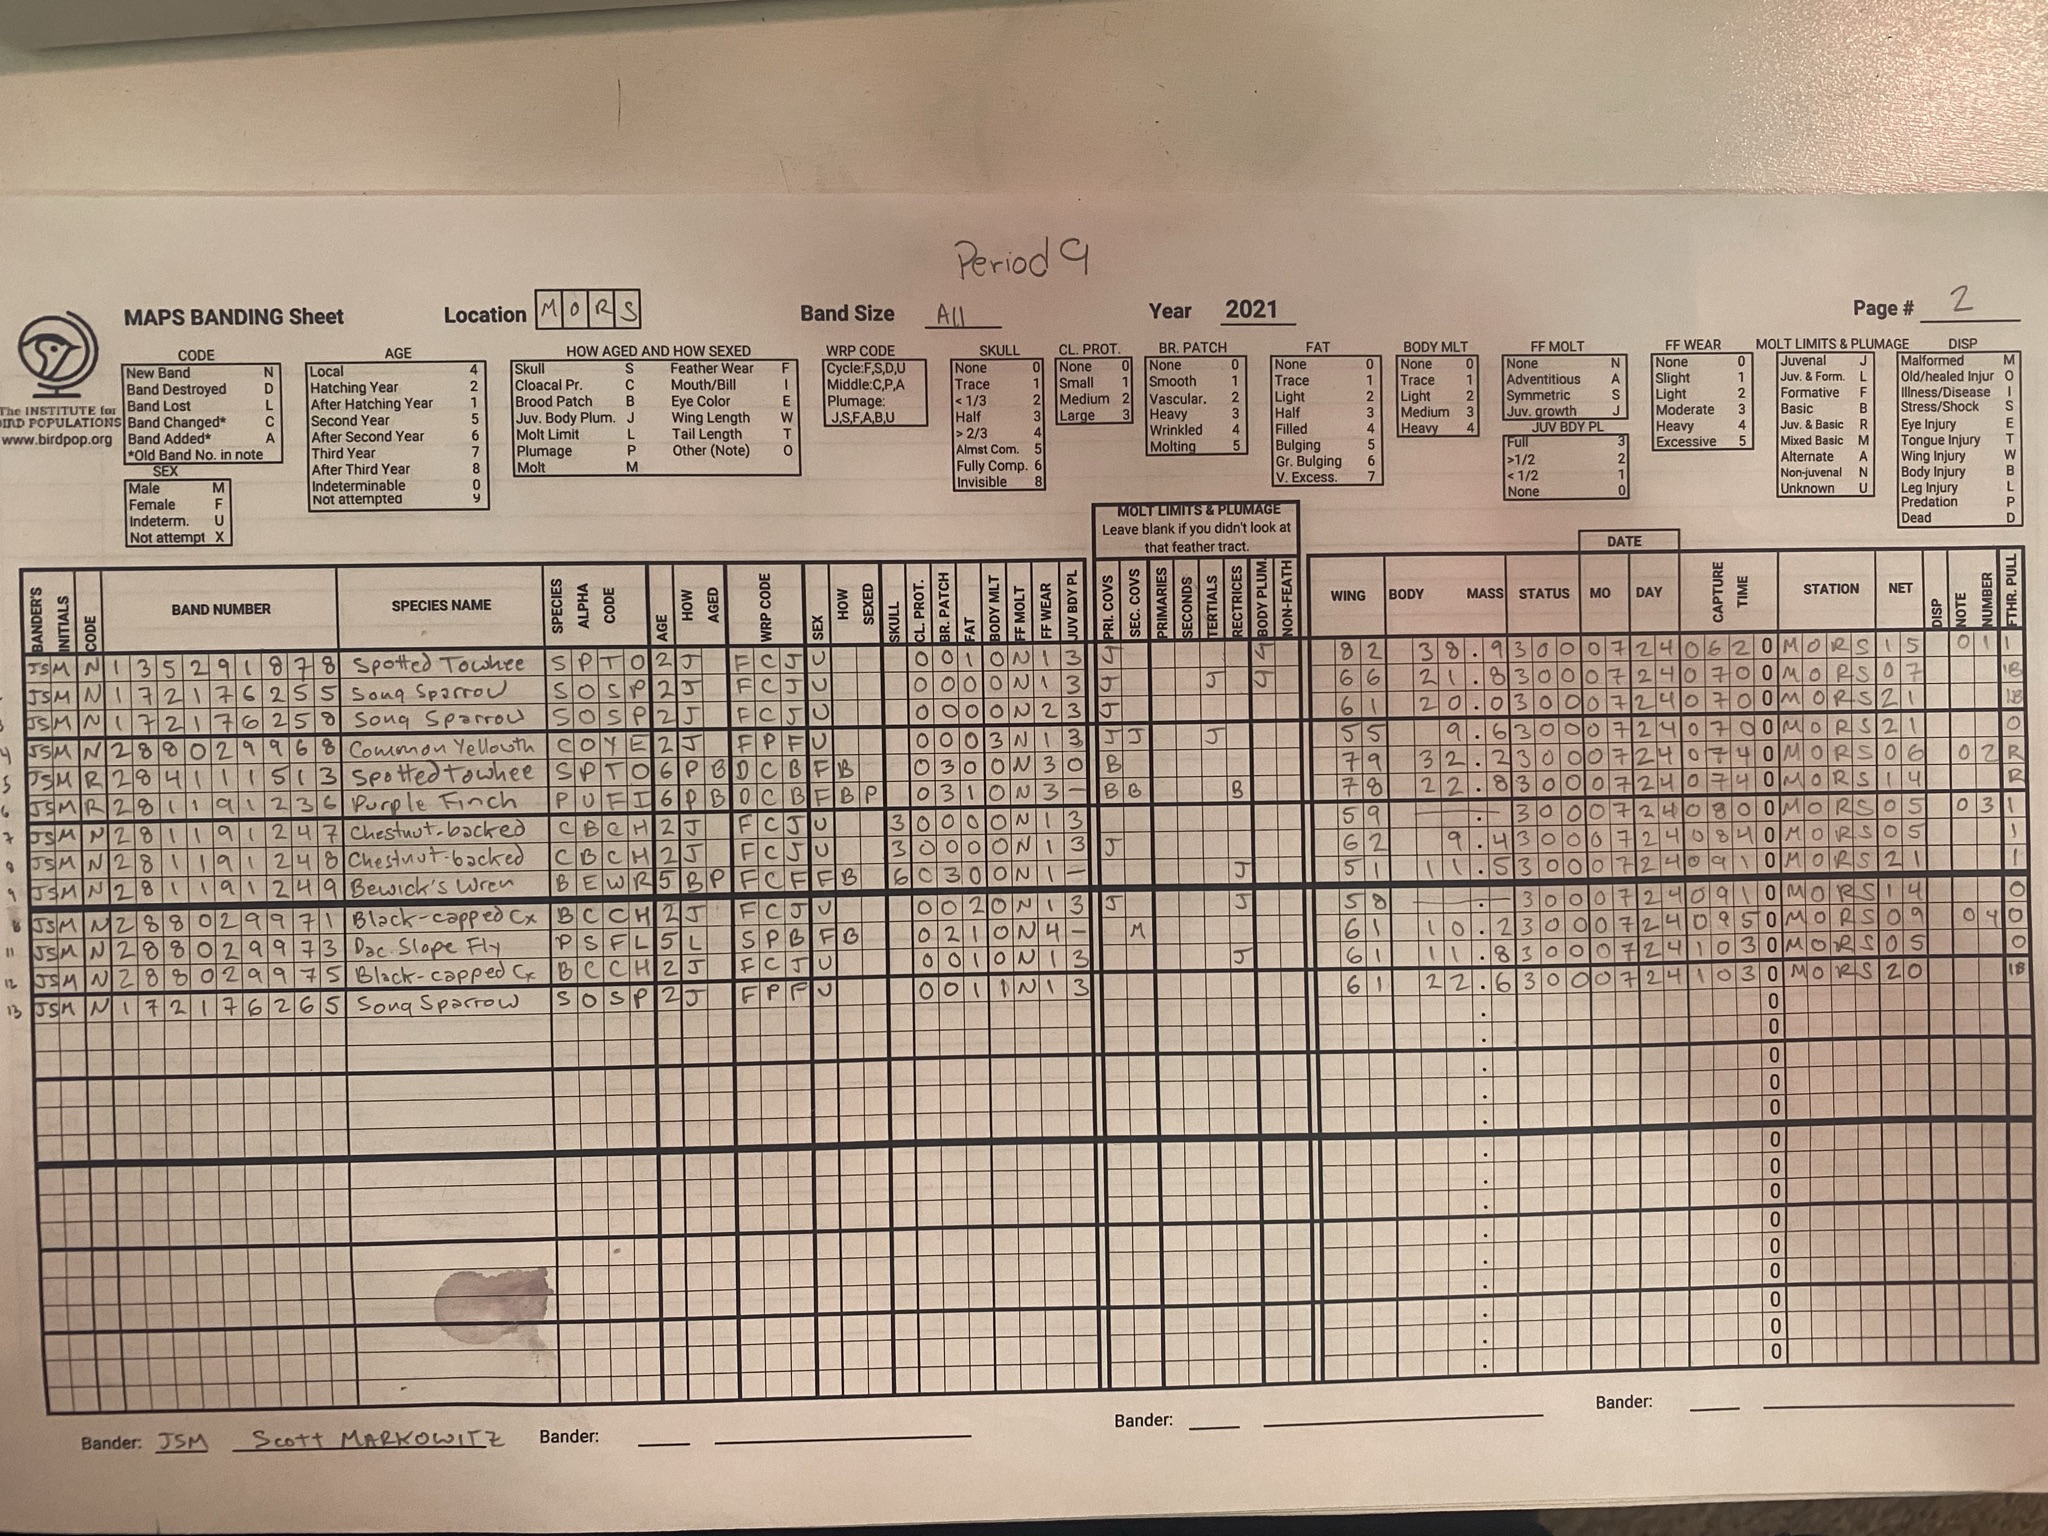 Period 9
MAPS BANDING Sheet Location M O R S Band Size All Year 2021 Page # 2
The INSTITUTE for
BIRD POPULATIONS
www.birdpop.org
CODE
New Band N
Band Destroyed D
Band Lost L
Band Changed* C
Band Added* A
*Old Band No. in note
SEX
Male M
Female F
Indeterm. U
Not attempt X
AGE
Local 4
Hatching Year 2
After Hatching Year 1
Second Year 5
After Second Year 6
Third Year 7
After Third Year 8
Indeterminable 0
Not attempted 9
HOW AGED AND HOW SEXED
Skull S Feather Wear F
Cloacal Pr. C Mouth/Bill I
Brood Patch B Eye Color E
Juv. Body Plum. J Wing Length W
Molt Limit L Tail Length T
Plumage P Other (Note) O
Molt M
WRP CODE
Cycle:F,S,D,U
Middle:C,P,A
Plumage:
J,S,F,A,B,U
SKULL
None 0
Trace 1
< 1/3 2
Half 3
> 2/3 4
Almst Com. 5
Fully Comp. 6
Invisible 8
CL. PROT.
None 0
Small 1
Medium 2
Large 3
BR. PATCH
None 0
Smooth 1
Vascular. 2
Heavy 3
Wrinkled 4
Molting 5
FAT
None 0
Trace 1
Light 2
Half 3
Filled 4
Bulging 5
Gr. Bulging 6
V. Excess. 7
BODY MLT
None 0
Trace 1
Light 2
Medium 3
Heavy 4
FF MOLT
None N
Adventitious A
Symmetric S
Juv. growth J
JUV BDY PL
Full 3
>1/2 2
< 1/2 1
None 0
FF WEAR
None 0
Slight 1
Light 2
Moderate 3
Heavy 4
Excessive 5
MOLT LIMITS & PLUMAGE
Juvenal J
Juv. & Form. L
Formative F
Basic B
Juv. & Basic R
Mixed Basic M
Alternate A
Non-juvenal N
Unknown U
DISP
Malformed M
Old/healed Injur O
Illness/Disease I
Stress/Shock S
Eye Injury E
Tongue Injury T
Wing Injury W
Body Injury B
Leg Injury L
Predation P
Dead D
MOLT LIMITS & PLUMAGE
Leave blank if you didn't look at
that feather tract.
DATE
BANDER'S INITIALS CODE BAND NUMBER SPECIES NAME SPECIES ALPHA CODE AGE HOW AGED WRP CODE SEX HOW SEXED SKULL CL. PROT. BR. PATCH FAT BODY MLT FF MOLT FF WEAR JUV BDY PL PRI. COVS SEC. COVS PRIMARIES SECONDS TERTIALS RECTRICES BODY PLUM. NON-FEATH WING BODY MASS STATUS MO DAY CAPTURE TIME STATION NET DISP NOTE NUMBER FTHR. PULL
JSM N 135291878 Spotted Towhee SPTO 2 J FCJ U 0 0 1 0 N 1 3 J J 82 38.9 300 07 24 062 0 MORS 15 01 1
JSM N 172176255 Song Sparrow SOSP 2 J FCJ U 0 0 0 0 N 1 3 J J J 66 21.8 300 07 24 070 0 MORS 07 1B
3 JSM N 172176258 Song Sparrow SOSP 2 J FCJ U 0 0 0 0 N 2 3 J 61 20.0 300 07 24 070 0 MORS 21 1B
4 JSM N 288029968 Common Yellowth COYE 2 J FPF U 0 0 0 3 N 1 3 J J J 55 9.6 300 07 24 070 0 MORS 21 0
5 JSM R 284111513 Spotted Towhee SPTO 6 P B DCB F B 0 3 0 0 N 3 0 B 79 32.2 300 07 24 074 0 MORS 06 02 R
6 JSM R 281191236 Purple Finch PUFI 6 P B DCB F B P 0 3 1 0 N 3 - B B B 78 22.8 300 07 24 074 0 MORS 14 R
7 JSM N 281191247 Chestnut-backed CBCH 2 J FCJ U 3 0 0 0 0 N 1 3 59 — . — 300 07 24 080 0 MORS 05 03 1
8 JSM N 281191248 Chestnut-backed CBCH 2 J FCJ U 3 0 0 0 0 N 1 3 J 62 9.4 300 07 24 084 0 MORS 05 1
9 JSM N 281191249 Bewick's Wren BEWR 5 B P FCF F B 6 0 3 0 0 N 1 - J 51 11.5 300 07 24 091 0 MORS 21 1
JSM N 288029971 Black-capped Cx BCCH 2 J FCJ U 0 0 2 0 N 1 3 J J 58 — . — 300 07 24 091 0 MORS 14 0
11 JSM N 288029973 Pac. Slope Fly PSFL 5 L SPB F B 0 2 1 0 N 4 - M 61 10.2 300 07 24 095 0 MORS 09 04 0
12 JSM N 288029975 Black-capped Cx BCCH 2 J FCJ U 0 0 1 0 N 1 3 J 61 11.8 300 07 24 103 0 MORS 05 0
13 JSM N 172176265 Song Sparrow SOSP 2 J FPF U 0 0 1 1 N 1 3 61 22.6 300 07 24 103 0 MORS 20 1B
0
0
0
0
0
0
0
0
0
0
0
0
0
0
Bander: JSM Scott MARKOWITZ Bander: Bander: Bander: